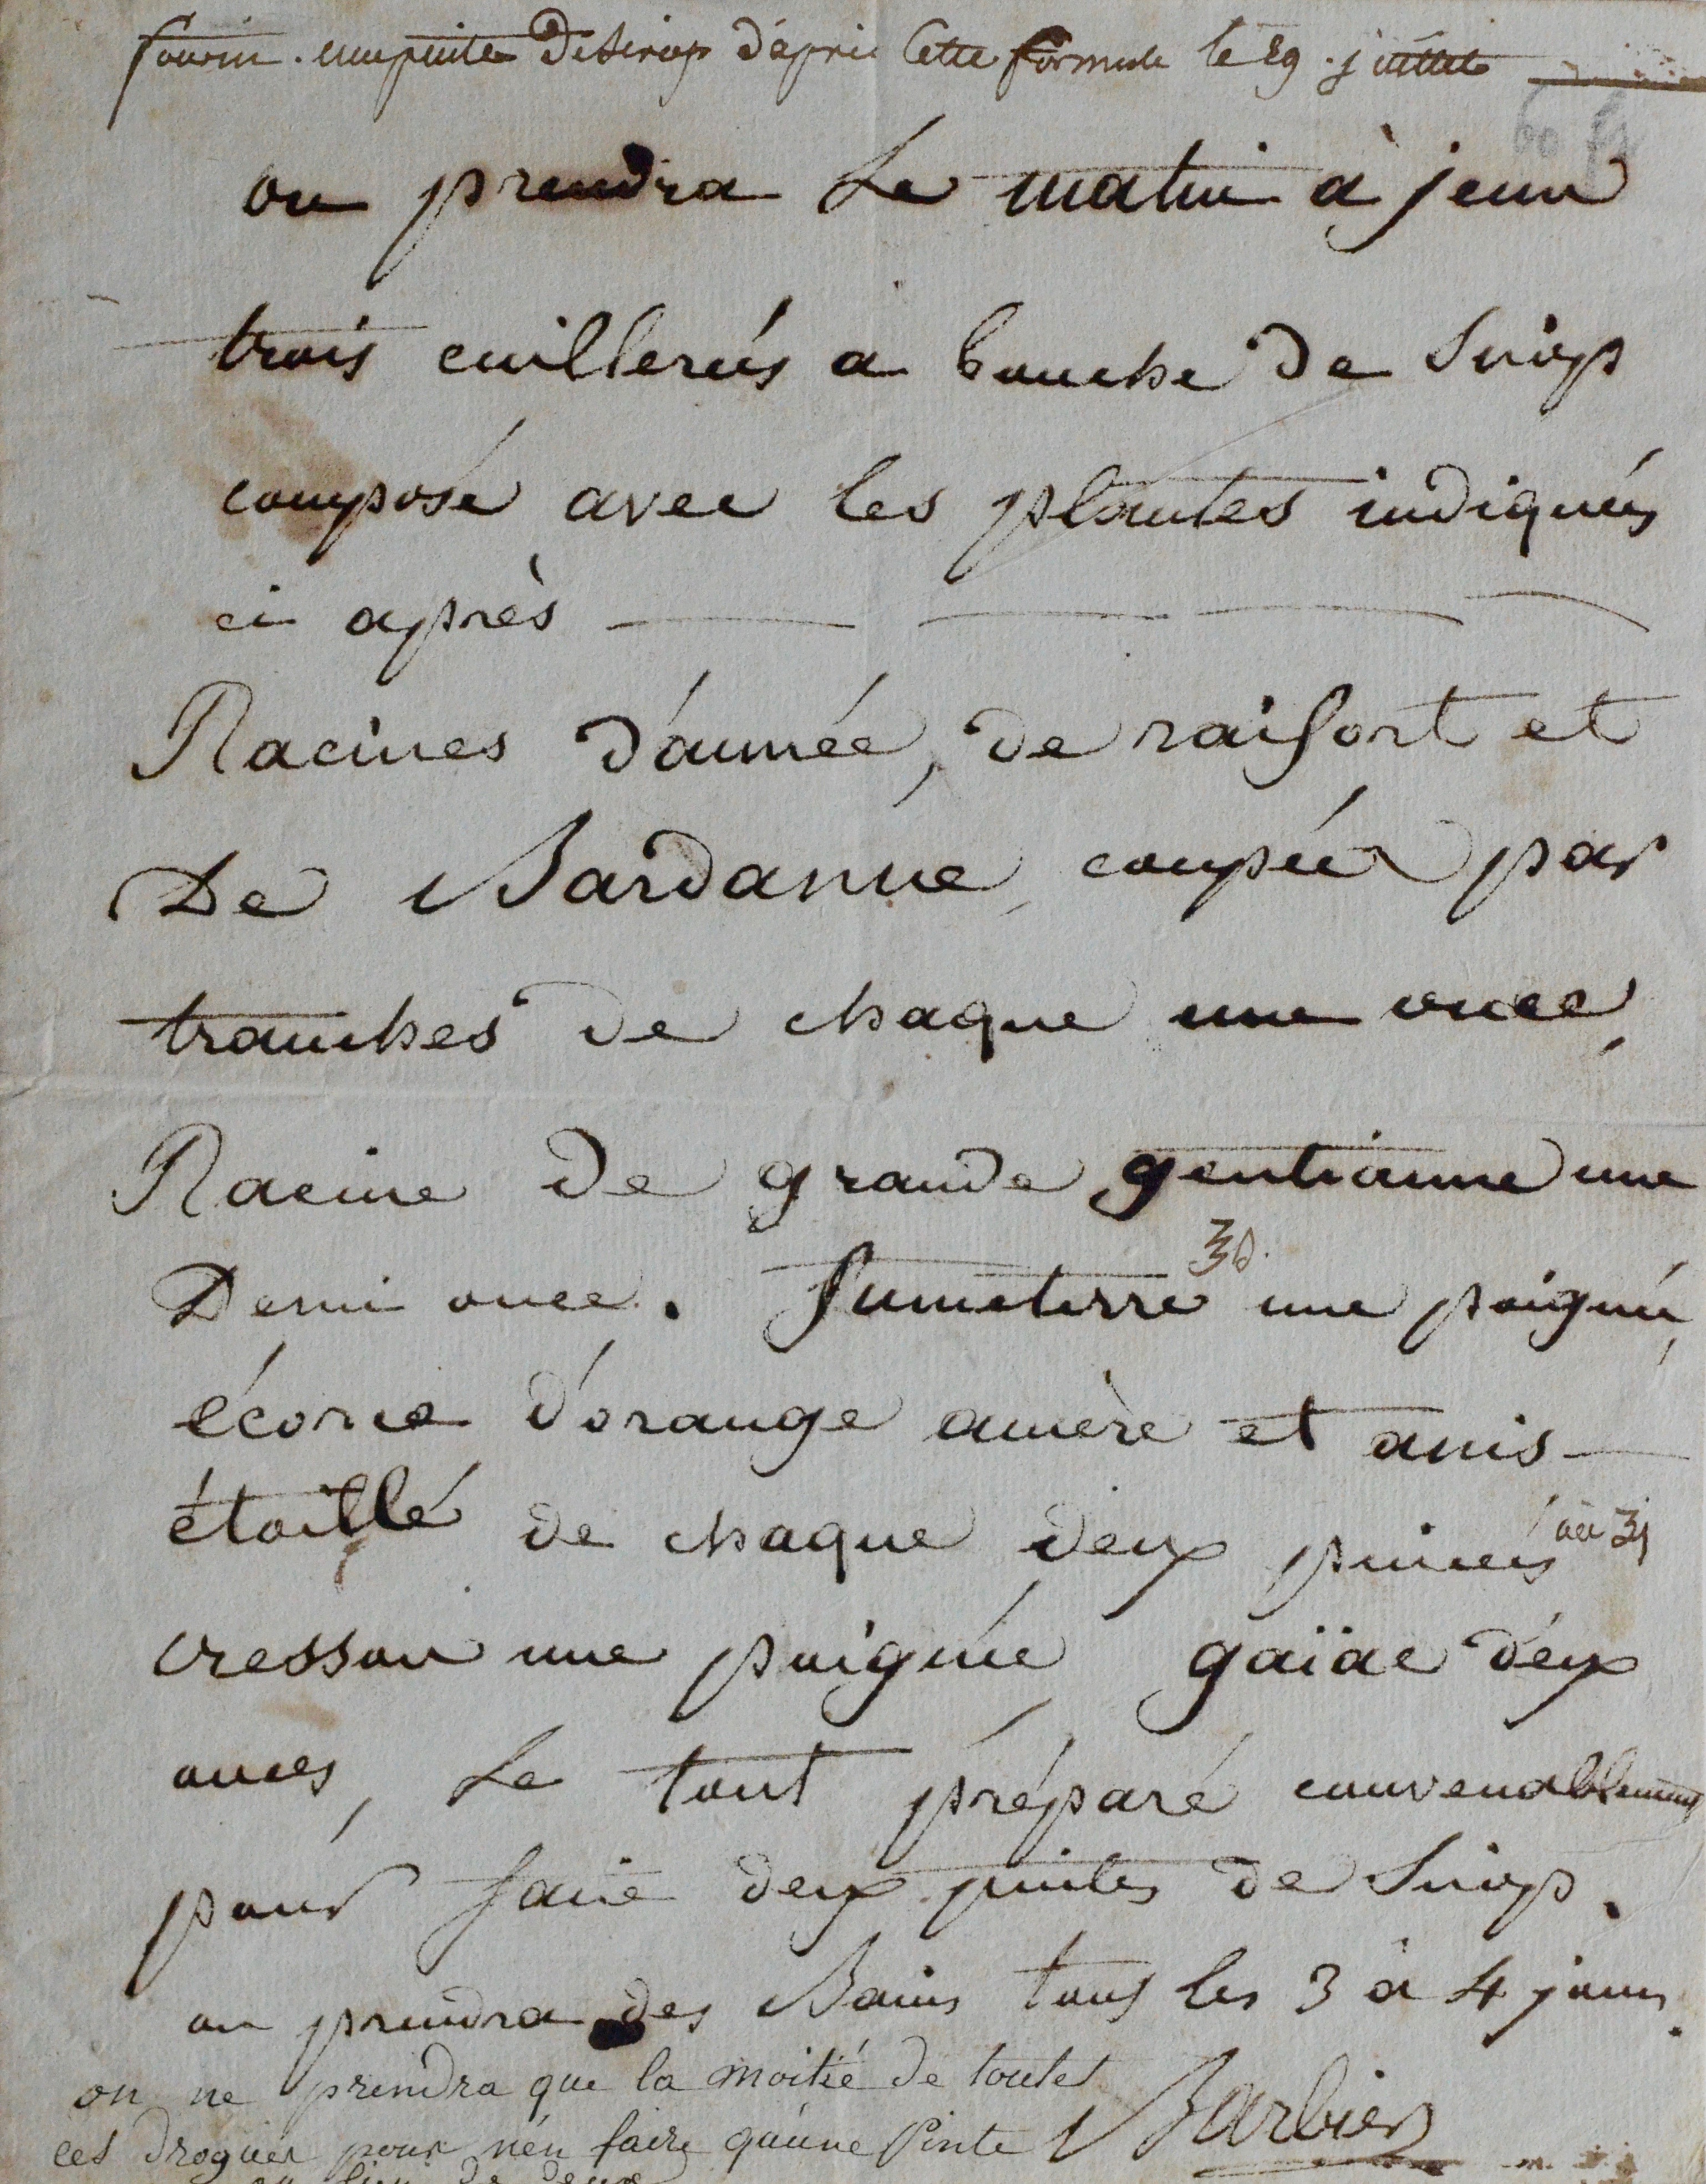 fourni une pinte De Sirop d'après Cette formule le 29 juillet
on prendra Le matin à jeun
trois cuillerés a bouche de Sirop
composé avec les plantes indiqués
ci après
Racines d'aunée, de raifort et
De Bardanne, coupée par
tranches de chaque une once,
Racine de grande gentianne une
Demi once. fumeterre une poignée,
écorce d'orange amère et anis
étoillé de chaque deux pincés āā ʒj
cresson une poignée, gaïac deux
onces, Le tout préparé convenablement
pour faire deux pintes de Sirop.
on prendra des Bains tous les 3 à 4 jours.
on ne prendra que la moitié de toutes
ces drogues pour n'en faire qu'une Pinte Barbier
au lieu de deux